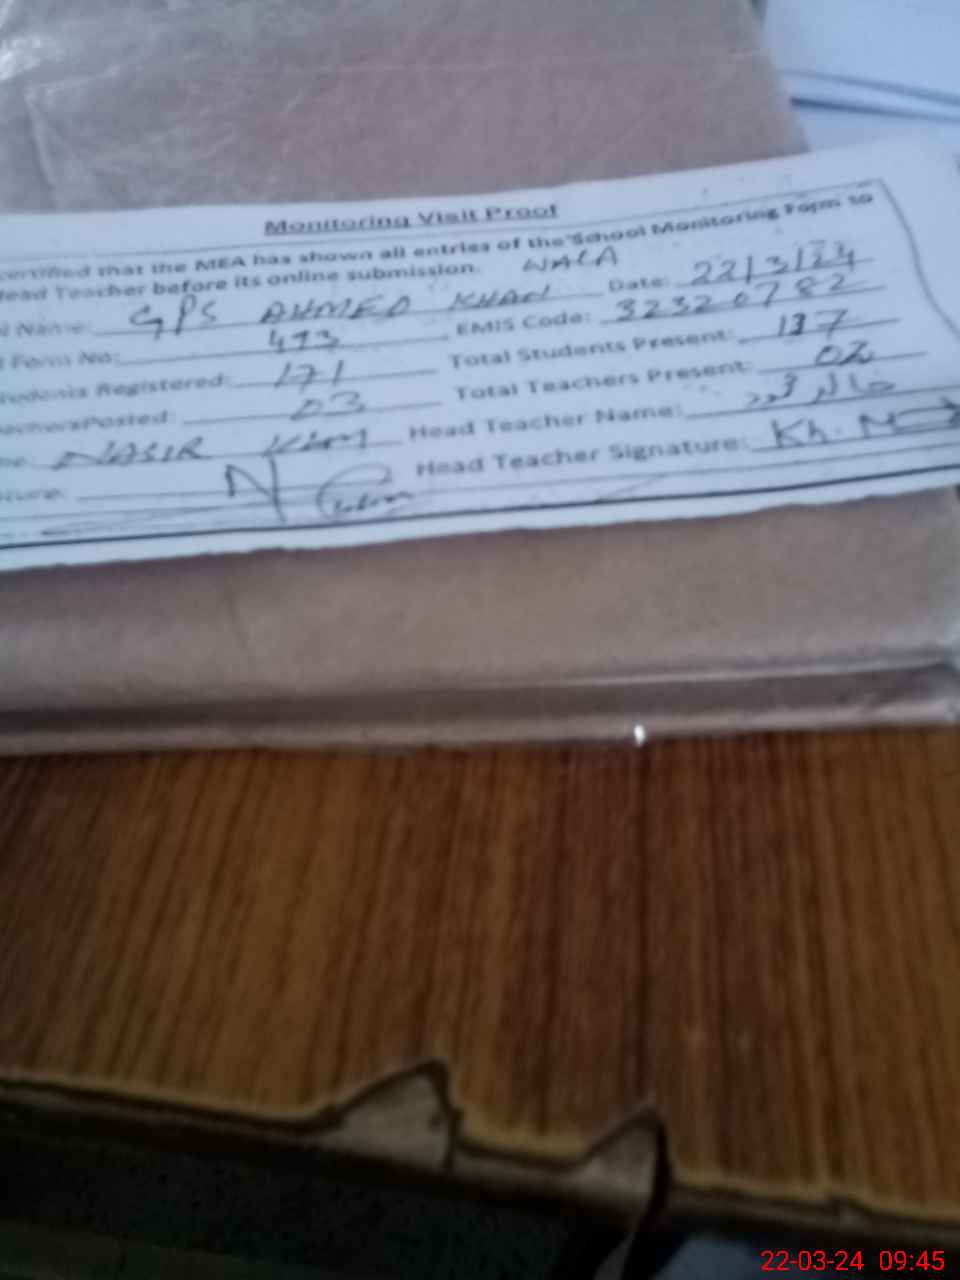 Monitoring Visit Proof
certified that the MEA has shown all entries of the School Monitoring Form to
Head Teacher before its online submission.
WALA
l Name: GPS AHMED KHAN Date: 22/3/24
l Form No: 493 EMIS Code: 32320782
tudents Registered: 171 Total Students Present: 137
eachersPosted: 03 Total Teachers Present: 02
me: NASIR Head Teacher Name:
ature: Head Teacher Signature: Kh.
22-03-24 09:45